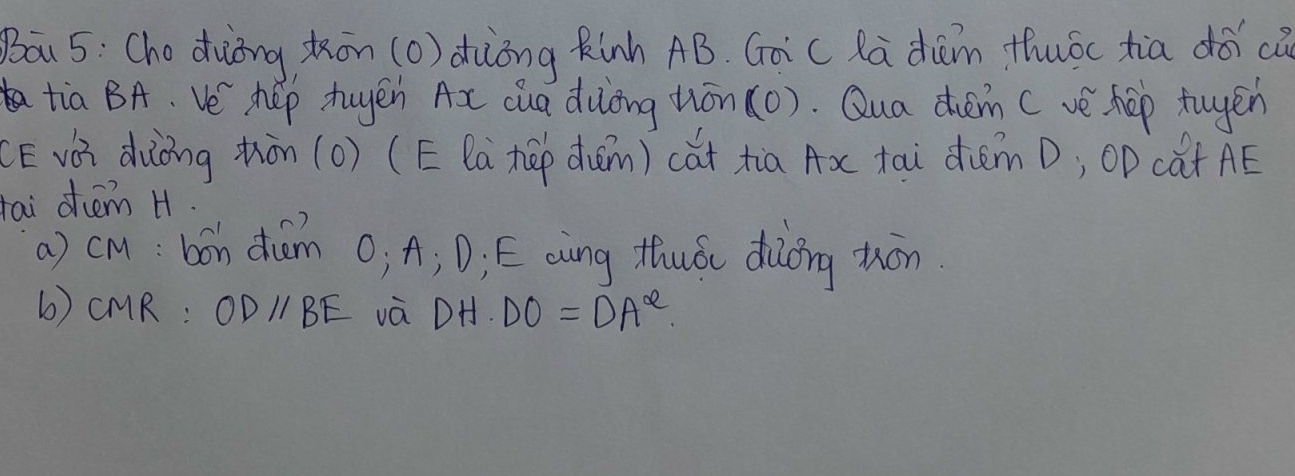 Bài 5: Cho đường tròn (O) đường kính AB. Gọi C là điểm thuộc tia đối củ
ta tia BA. Vẽ tiếp tuyến Ax của đường tròn (O). Qua điểm C vẽ tiếp tuyến
CE với đường tròn (O) (E là tiếp điểm) cắt tia Ax tại điểm D; OD cắt AE
tại điểm H.
a) CM : bốn điểm O; A; D; E cùng thuộc đường tròn.
b) CMR : OD // BE và DH. DO = DA².